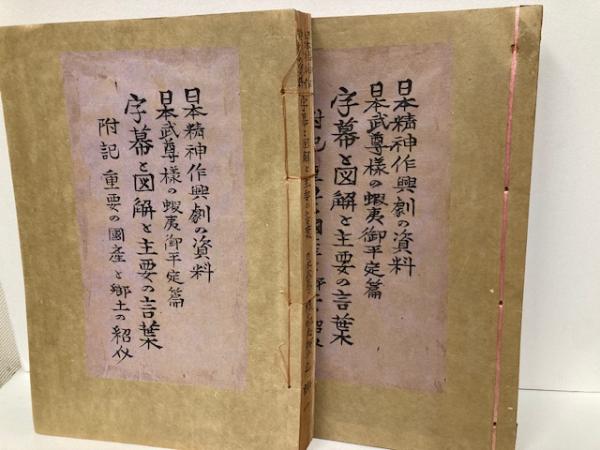 日本精神作興劇の資料
日本武尊様の蝦夷御平定篇
字幕と図解と主要の言葉
附記 重要の國産と郷土の紹介
日本精神作興劇の資料
日本武尊様の蝦夷御平定篇
字幕と図解と主要の言葉